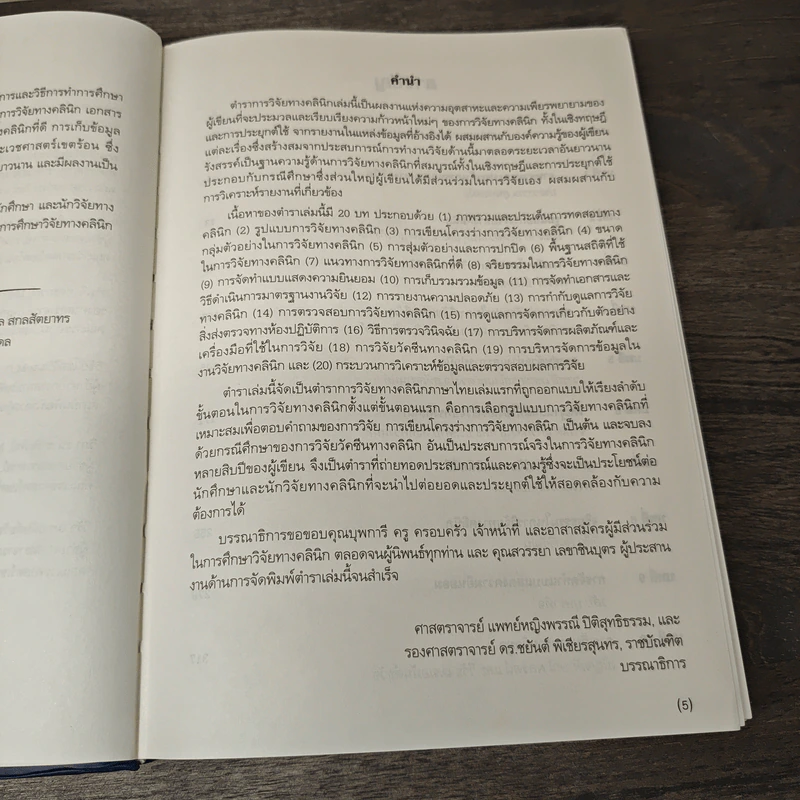 การและวิธีการทำการศึกษา
การวิจัยทางคลินิก เอกสาร
คลินิกที่ดี การเก็บข้อมูล
ะเวชศาสตร์เขตร้อน ซึ่ง
ยาวนาน และมีผลงานเป็น
นักศึกษา และนักวิจัยทาง
การศึกษาวิจัยทางคลินิก
ล สกลสัตยาทร
ดล
คำนำ
ตำราการวิจัยทางคลินิกเล่มนี้เป็นผลงานแห่งความอุตสาหะและความเพียรพยายามของ
ผู้เขียนที่จะประมวลและเรียบเรียงความก้าวหน้าใหม่ๆ ของการวิจัยทางคลินิก ทั้งในเชิงทฤษฎี
และการประยุกต์ใช้ จากรายงานในแหล่งข้อมูลที่อ้างอิงได้ ผสมผสานกับองค์ความรู้ของผู้เขียน
แต่ละเรื่องซึ่งสร้างสมจากประสบการณ์การทำงานวิจัยด้านนี้มาตลอดระยะเวลาอันยาวนาน
รังสรรค์เป็นฐานความรู้ด้านการวิจัยทางคลินิกที่สมบูรณ์ทั้งในเชิงทฤษฎีและการประยุกต์ใช้
ประกอบกับกรณีศึกษาซึ่งส่วนใหญ่ผู้เขียนได้มีส่วนร่วมในการวิจัยเอง ผสมผสานกับ
การวิเคราะห์รายงานที่เกี่ยวข้อง
เนื้อหาของตำราเล่มนี้มี 20 บท ประกอบด้วย (1) ภาพรวมและประเด็นการทดสอบทาง
คลินิก (2) รูปแบบการวิจัยทางคลินิก (3) การเขียนโครงร่างการวิจัยทางคลินิก (4) ขนาด
กลุ่มตัวอย่างในการวิจัยทางคลินิก (5) การสุ่มตัวอย่างและการปกปิด (6) พื้นฐานสถิติที่ใช้
ในการวิจัยทางคลินิก (7) แนวทางการวิจัยทางคลินิกที่ดี (8) จริยธรรมในการวิจัยทางคลินิก
(9) การจัดทำแบบแสดงความยินยอม (10) การเก็บรวมรวมข้อมูล (11) การจัดทำเอกสารและ
วิธีดำเนินการมาตรฐานงานวิจัย (12) การรายงานความปลอดภัย (13) การกำกับดูแลการวิจัย
ทางคลินิก (14) การตรวจสอบการวิจัยทางคลินิก (15) การดูแลการจัดการเกี่ยวกับตัวอย่าง
สิ่งส่งตรวจทางห้องปฏิบัติการ (16) วิธีการตรวจวินิจฉัย (17) การบริหารจัดการผลิตภัณฑ์และ
เครื่องมือที่ใช้ในการวิจัย (18) การวิจัยวัคซีนทางคลินิก (19) การบริหารจัดการข้อมูลใน
งานวิจัยทางคลินิก และ (20) กระบวนการวิเคราะห์ข้อมูลและตรวจสอบผลการวิจัย
ตำราเล่มนี้จัดเป็นตำราการวิจัยทางคลินิกภาษาไทยเล่มแรกที่ถูกออกแบบให้เรียงลำดับ
ขั้นตอนในการวิจัยทางคลินิกตั้งแต่ขั้นตอนแรก คือการเลือกรูปแบบการวิจัยทางคลินิกที่
เหมาะสมเพื่อตอบคำถามของการวิจัย การเขียนโครงร่างการวิจัยทางคลินิก เป็นต้น และจบลง
ด้วยกรณีศึกษาของการวิจัยวัคซีนทางคลินิก อันเป็นประสบการณ์จริงในการวิจัยทางคลินิก
หลายสิบปีของผู้เขียน จึงเป็นตำราที่ถ่ายทอดประสบการณ์และความรู้ซึ่งจะเป็นประโยชน์ต่อ
นักศึกษาและนักวิจัยทางคลินิกที่จะนำไปต่อยอดและประยุกต์ใช้ให้สอดคล้องกับความ
ต้องการได้
บรรณาธิการขอขอบคุณบุพการี ครู ครอบครัว เจ้าหน้าที่ และอาสาสมัครผู้มีส่วนร่วม
ในการศึกษาวิจัยทางคลินิก ตลอดจนผู้นิพนธ์ทุกท่าน และ คุณสวรรยา เลขาชินบุตร ผู้ประสาน
งานด้านการจัดพิมพ์ตำราเล่มนี้จนสำเร็จ
ศาสตราจารย์ แพทย์หญิงพรรณี ปิติสุทธิธรรม, และ
รองศาสตราจารย์ ดร.ชยันต์ พิเชียรสุนทร, ราชบัณฑิต
บรรณาธิการ
(5)